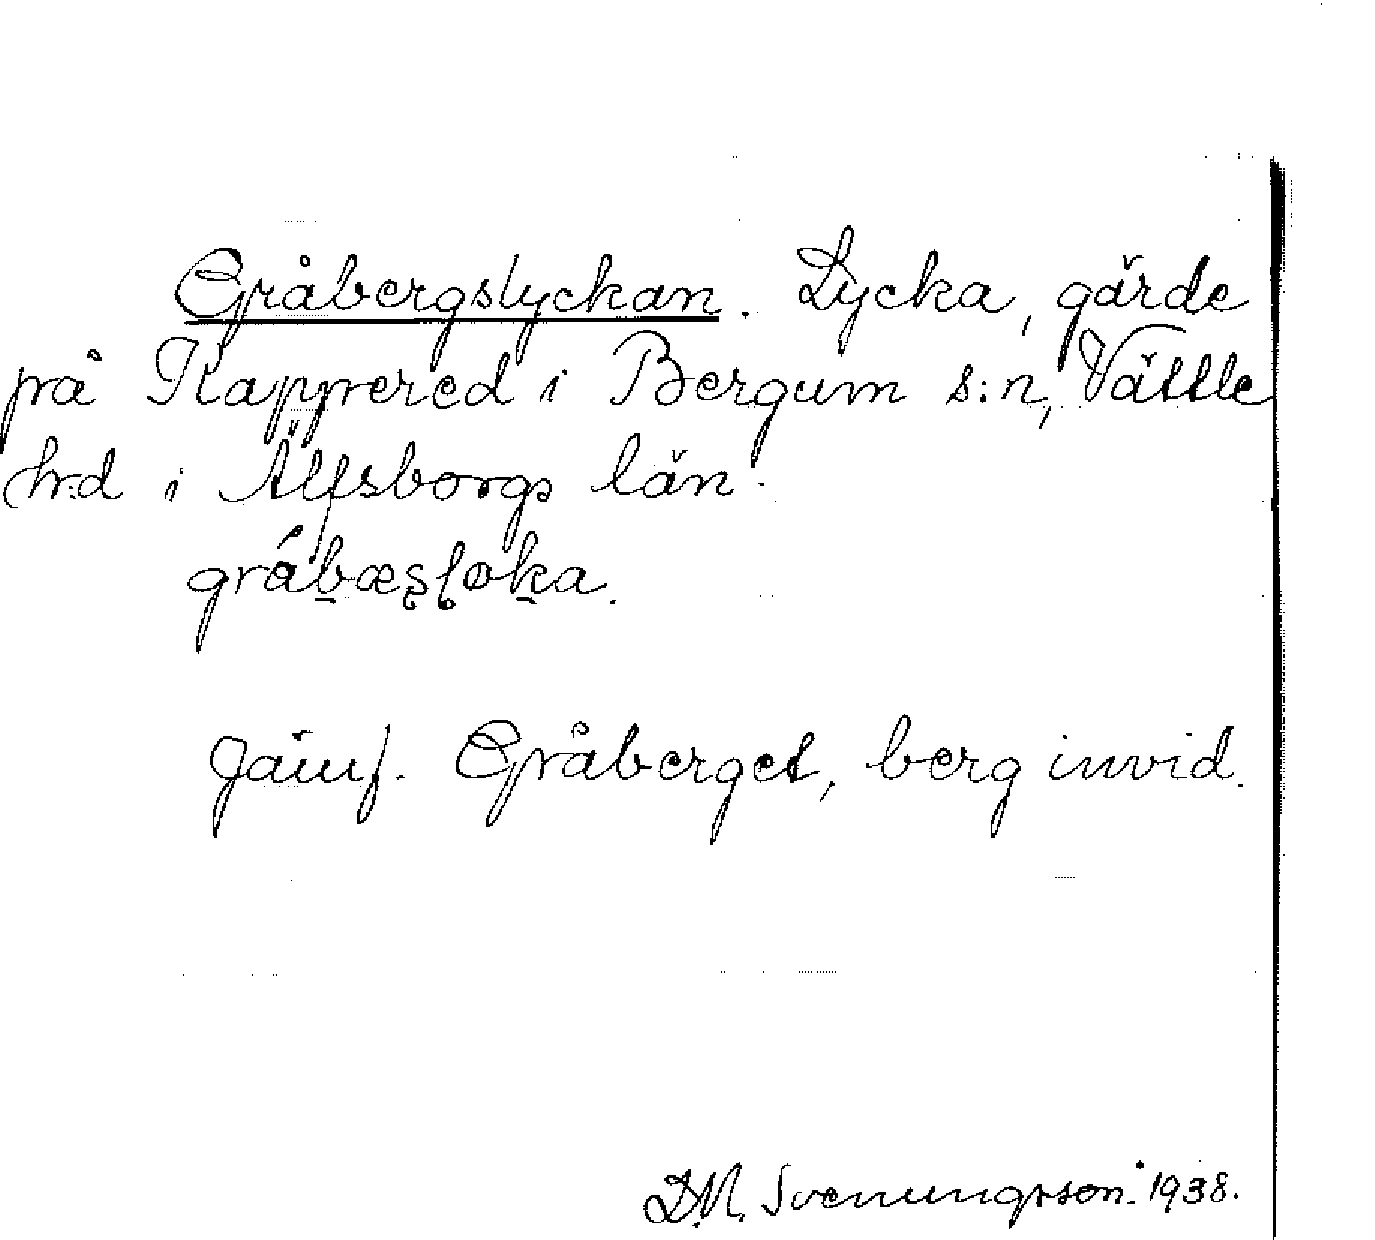 Gråbergslyckan. Lycka, gärde
på Kappered i Bergum s:n, Vättle
hrd i Älfsborgs län.
gråbæsløka.
Jämf. Gråberget, berg invid.
D.N. Svenungsson. 1938.